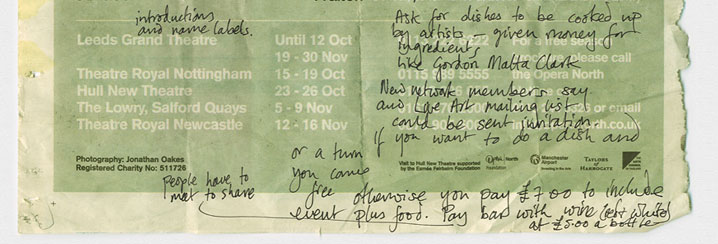 introductions
and name labels.
Ask for dishes to be cooked up
by artists – given money for
ingredients,
like Gordon Matta Clark
New network members say
and Live Art mailing list
could be sent invitation
If you want to do a dish and
or a turn
you come
free
otherwise you pay £7.00 to include
event plus food. Pay bar with wine (red & white)
at £5.00 a bottle
People have to
met to share
Leeds Grand Theatre Until 12 Oct
19 - 30 Nov
Theatre Royal Nottingham 15 - 19 Oct
Hull New Theatre 23 - 26 Oct
The Lowry, Salford Quays 5 - 9 Nov
Theatre Royal Newcastle 12 - 16 Nov
For a free
please call
the Opera North
or email
Photography: Jonathan Oakes
Registered Charity No: 511726
Visit to Hull New Theatre supported
by the Esmée Fairbairn Foundation
Opera North
Manchester
Airport
TAYLORS
of
HARROGATE